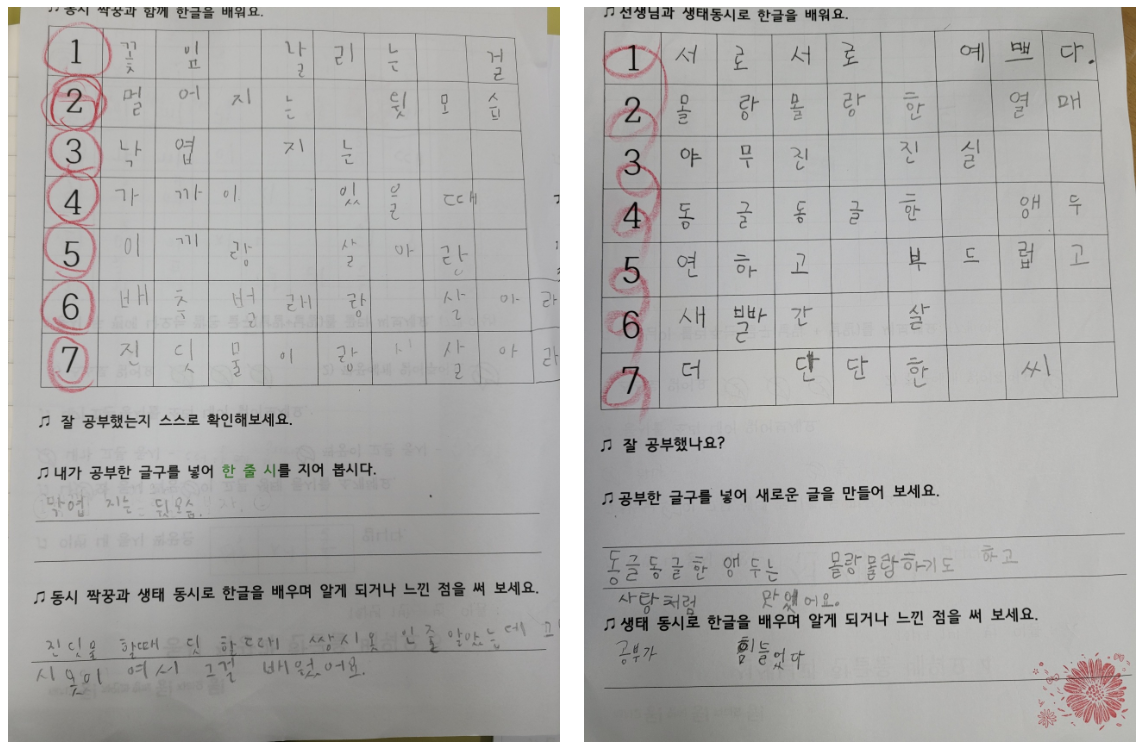 ♫ 동시 짝꿍과 함께 한글을 배워요.
1 꽃 잎 날 리 는 길
2 멀 어 지 는 뒷 모 습
3 낙 엽 지 는
4 가 까 이 있 을 때
5 이 끼 랑 살 아 란
6 배 추 벌 래 랑 살 아 라
7 진 딧 물 이 랑 살 아 라
♫ 잘 공부했는지 스스로 확인해보세요.
♫ 내가 공부한 글구를 넣어 한 줄 시를 지어 봅시다.
낙엽 지는 뒷모습.
♫ 동시 짝꿍과 생태 동시로 한글을 배우며 알게 되거나 느낀 점을 써 보세요.
할때 딧 할때 쌍시옷 인줄 알았는데
시옷이 여서 그걸 배웠어요.
♫ 선생님과 생태동시로 한글을 배워요.
1 서 로 서 로 예 쁘 다.
2 몰 랑 몰 랑 한 열 매
3 야 무 진 진 실
4 동 글 동 글 한 앵 두
5 연 하 고 부 드 럽 고
6 새 빨 간 살
7 더 단 단 한 씨
♫ 잘 공부했나요?
♫ 공부한 글구를 넣어 새로운 글을 만들어 보세요.
동글동글한 앵두는 몰랑몰랑하기도 하고
사탕처럼 맛있어요.
♫ 생태 동시로 한글을 배우며 알게 되거나 느낀 점을 써 보세요.
공부가 힘들었다